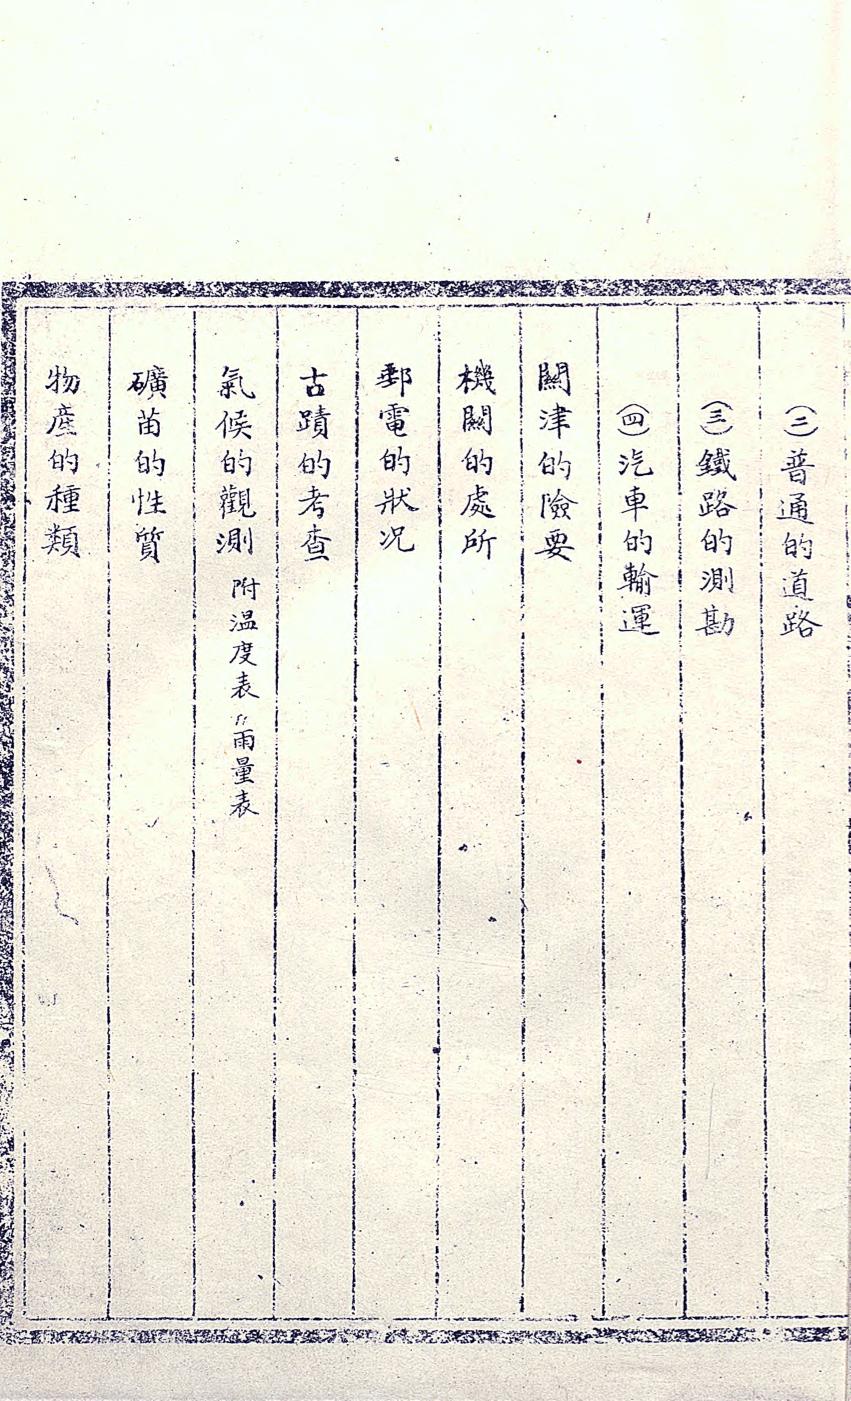 (二)普通的道路
(三)鐵路的測勘
(四)汽車的輸運
關津的險要
機關的處所
郵電的狀况
古蹟的考查
氣候的觀測 附温度表〃雨量表
礦苗的性質
物產的種類